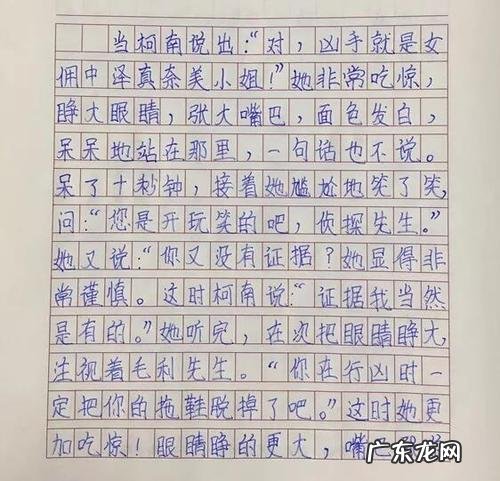 当柯南说出:“对，凶手就是女
佣中泽真奈美小姐!”她非常吃惊，
睁大眼睛，张大嘴巴，面色发白，
呆呆地站在那里，一句话也不说。
呆了十秒钟，接着她尴尬地笑了笑，
问:“您是开玩笑的吧，侦探先生。”
她又说:“你又没有证据?她显得非
常谨慎。这时柯南说:“证据我当然
是有的。”她听完，在次把眼睛睁大，
注视着毛利先生。“你在行凶时一
定把你的拖鞋脱掉了吧。”这时她更
加吃惊!眼睛睁的更大，嘴巴
广东龙网